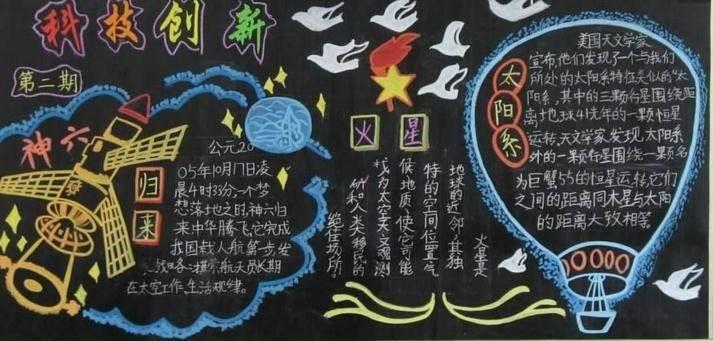 科技创新
第二期
神六
归来
公元20
05年10月17日凌
晨4时33分,一个梦
想落地之时,神六归
来中华腾飞,它完成
我国载人航第一步发
航天员长期
在太空工作,生活规律。
火星
火星是
地球的近邻,其独
特的空间位置气
候地质,使它可能
成为太空天文观测
和人类移民的
绝佳场所
太阳系
美国天文学家
宣布,他们发现了一个与我们
所处的太阳系特征类似的“太
阳系,其中的三颗行星围绕距
离地球41光年的一颗恒星
运转,天文学家发现,太阳系
外的一颗行星围绕一颗名
为巨蟹55的恒星运转,它们
之间的距离同木星与太阳
的距离大致相等。